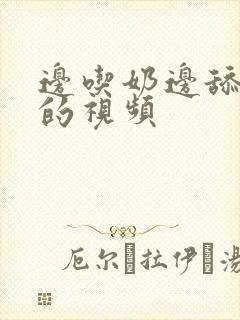 邊喫奶邊舔
的視頻
厄尔 拉伊 湯